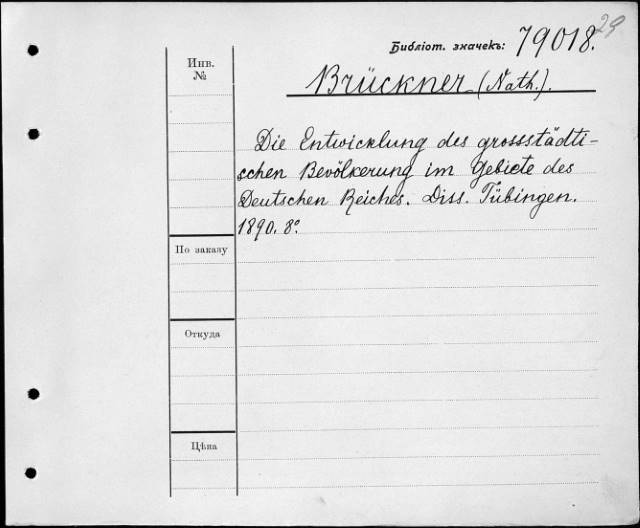 29
Библіот. значекъ: 79018.
Инв.
№
Brückner (Nath.).
Die Entwicklung des grossstädti-
schen Bevölkerung im Gebiete des
Deutschen Reiches. Diss. Tübingen.
1890. 8°.
По заказу
Откуда
Цѣна